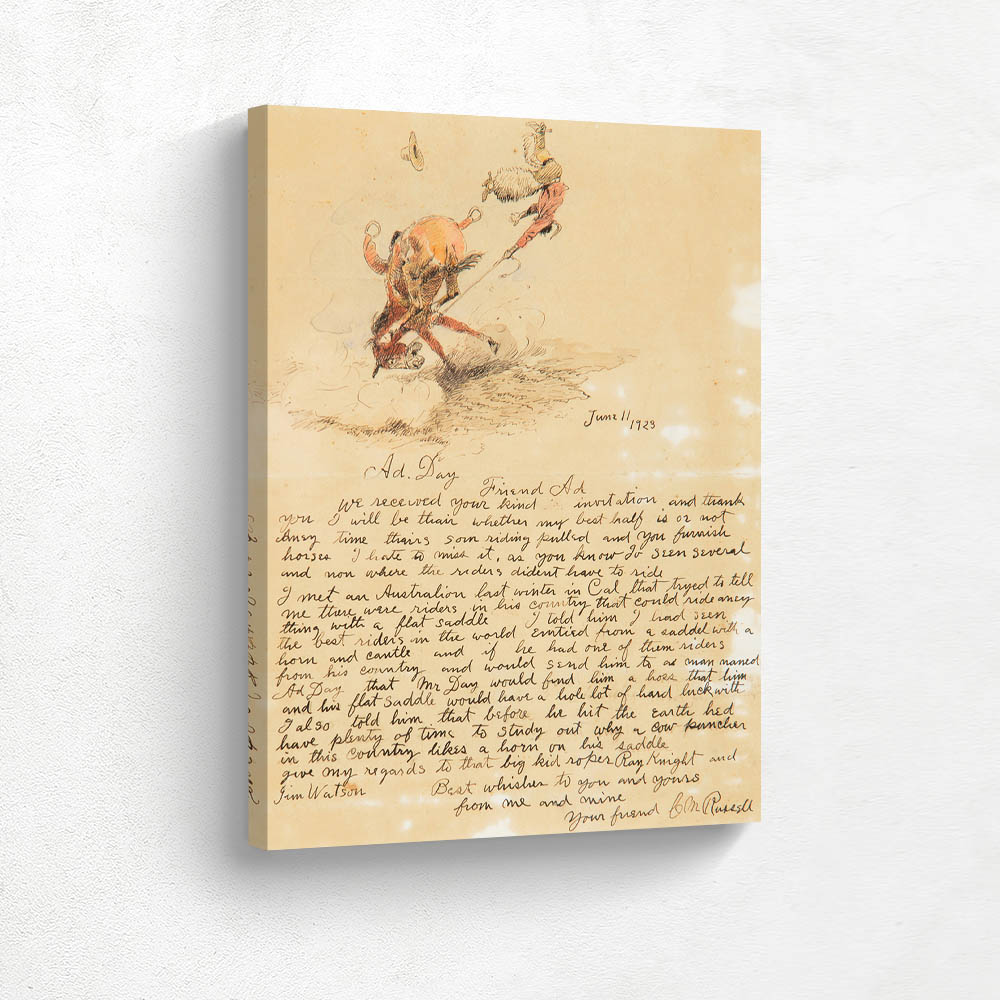 June 11 1923
Ad. Day
Friend Ad
We received your kind invitation and thank
you I will be thair whether my best half is or not
aney time thairs som riding pulled and you furnish
horses I hate to miss it. as you know Iv seen several
and non where the riders dident have to ride
I met an Australion last winter in Cal that tryed to tell
me there were riders in his country that could ride aney
thing with a flat saddle I told him I had seen
the best riders in the world emtied from a saddel with a
horn and cantle and if he had one of them riders
from his country and would send him to a man named
Ad Day that Mr Day would find him a hoss that him
and his flat saddle would have a hole lot of hard luck with
I also told him that before he hit the earth hed
have plenty of time to study out why a cow puncher
in this country likes a horn on his saddle
give my regards to that big kid roper Ray Knight and
Jim Watson Best whishes to you and yours
from me and mine
Your friend C M Russell